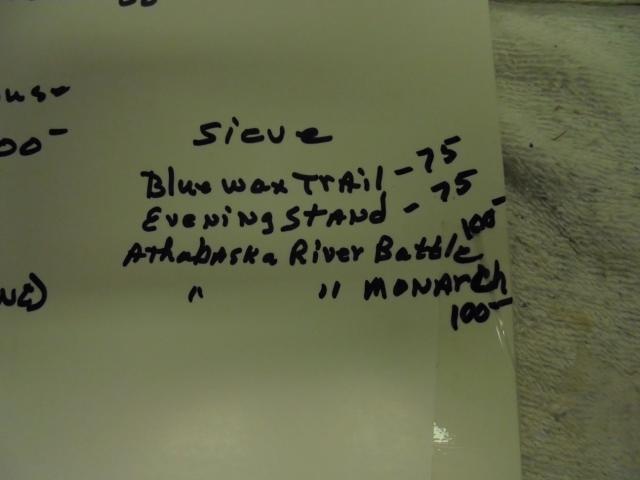 us-
00-
Sieve
Bluewax Trail - 75
Evening Stand - 75
Athabaska River Battle 100-
" " Monarch
100-